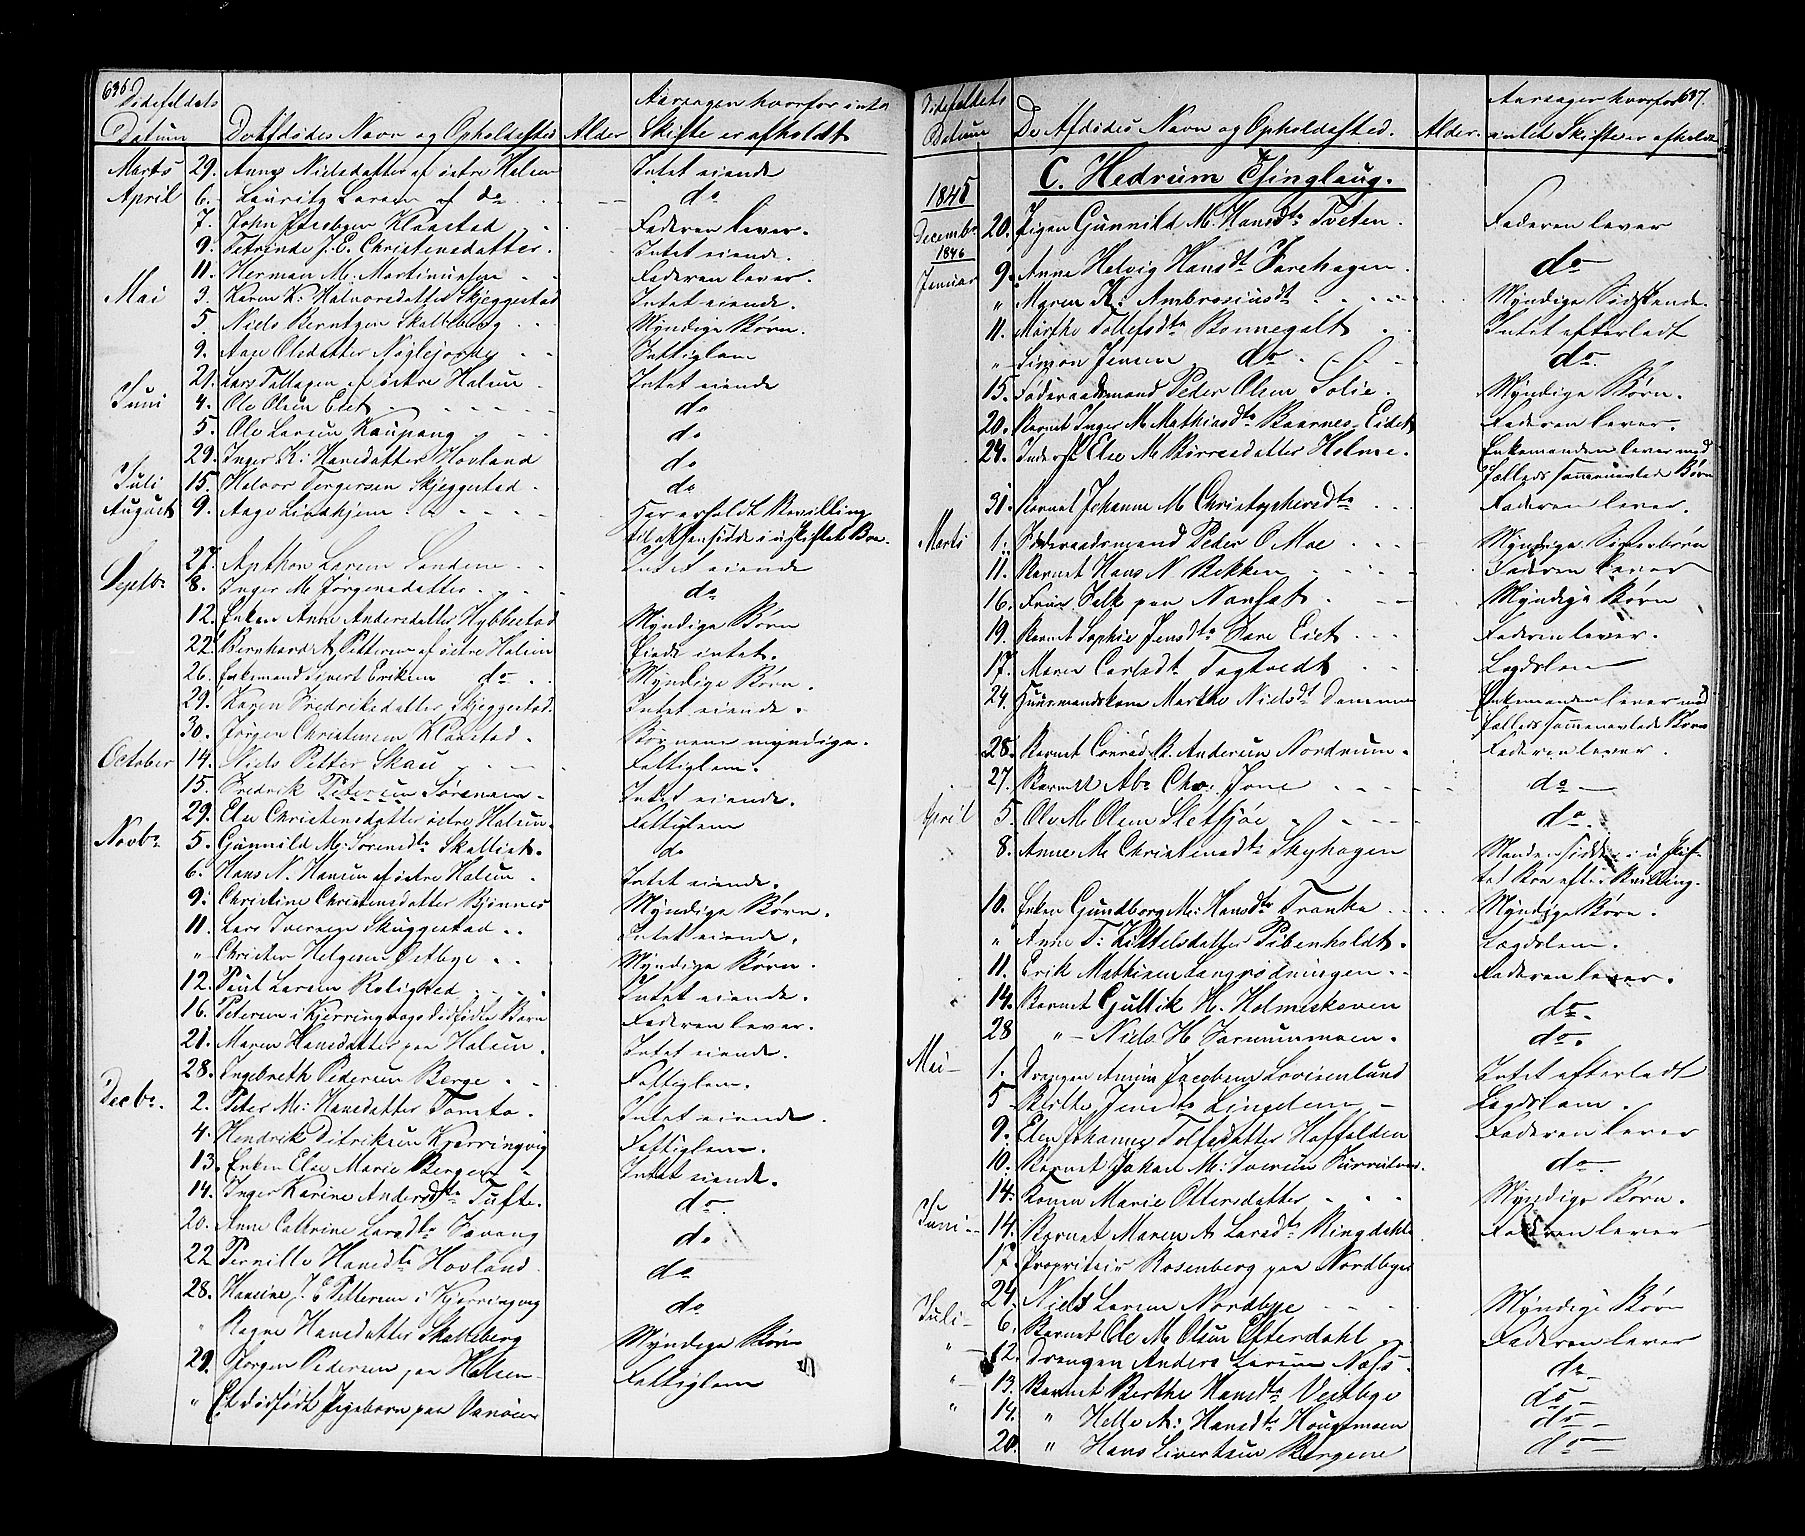 636.
Dødsfaldets Datum
De Afdødes Navn og Opholdssted
Alder
Aarsagen hvorfor intet Skifte er afholdt
Marts 29. Anne Nielsdatter af østre Halsen Intet eiende
April 6. Lauritz Larsen af do do
7. John Klaastad Faderen lever.
9. Petrine J. E. Christensdatter. Intet eiende.
11. Herman M. Martinussen Faderen lever.
Mai 3. Karen K: Halvorsdatter Skjeggestad Intet eiende.
5. Niels Berntsen Skalleberg Myndige Børn.
9. Aase Olsdatter Fattiglem
21. Lars Tallagsen af østre Halsen Intet eiende
Juni 4. Ole Olsen Eiet do
5. Ole Larsen Kaupang do
29. Inger K: Hansdatter Hovland do
Juli 15. Halvor Torgersen Skjeggestad do
August 9. Aage Lindhjem Har erholdt Bevilling
til at hensidde i uskiftet Boe.
27. Larsen Sandene Intet eiende
Septbr 8. Inger M. Jørgensdatter do
12. Enken Anne Andersdatter Hybbestad Myndige Børn
22. Bernhard A. Pettersen af østre Halsen Eiede intet.
26. Enkemand Sivert Eriksen do Myndige Børn.
29. Karen Fredriksdatter Skjeggestad. Intet eiende.
30. Jørgen Christensen Klaastad. Børnene myndige.
October 14. Niels Petter Skau Fattiglem.
15. Fredrik Petersen Sørensen Intet eiende.
29. Else Christensdatter østre Halsen. Fattiglem
Novbr 5. Gunnild M: Sørensdtr Skalliet. do
6. Hans N. Hansen af østre Halsen. Intet eiende.
9. Christine Christensdatter Bjønnes Myndige Børn.
11. Lars Iversen Skuggestad Intet eiende.
" Christen Helgesen Østbye Myndige Børn.
12. Paul Larsen Rolighed Intet eiende.
16. Petersen i Kjerringvigs dødfødte Barn Faderen lever.
21. Maren Hansdatter paa Halsen. Intet eiende.
28. Ingebreth Pedersen Berge Fattiglem.
Decbr. 2. Peter M: Hansdatter Tomta. Intet eiende.
4. Hendrik Ditriksen Kjerringvig Fattiglem.
13. Enken Else Marie Bergen Intet eiende.
14. Inger Karine Andersdtr Tufte. do.
20. Anne Cathrine Larsdtr do
22 Pernille Hansdtr Hovland. do
28. Hansine J. E. Pettersen i Kjerringvig do
" Ragne Hansdatter Skalleberg Myndige Børn
29. Jørgen Pedersen paa Halsen Fattiglem
" Et dødfødt Pigebarn paa
637.
Dødsfaldets Datum
De Afdødes Navn og Opholdssted.
Alder.
Aarsagen hvorfor intet Skifte er afholdt
C. Hedrum Thinglaug.
1845
Decembr 20. Pigen Gunnild M. Hansdtr Tveten. Faderen lever
1846
Januar 9. Anne Helvig Hansdtr Farehagen do
" Maren K: Ambrosiusdtr Myndige Sødskende.
11. Marthe Tollefsdtr Bonnegolt Intet efterladt
" Simon Jensen do. do.
15. Føderaadsmand Peder Olsen Solie. Myndige Børn.
20. Barnet Inger M. Mathiasdtr Baarnes Eidet Faderen lever.
24. Inderst Else M. Børresdatter Holme. Enkemanden lever med
fælleds sammenavlede Børn
31. Barnet Johanne M. Christophersdtr Faderen lever.
Marts 1. Føderaadsmand Peder O. Moe Myndige Sønnebørn
11. Barnet Hans N. Bekken Faderen lever
16. Enken Falk paa Nanset. Myndige Børn
19. Barnet Sophie Jensdtr Fare Eiet Faderen lever.
17. Maren Carlsdtr Tagtvedt Lægdslem
24. Huusmandskone Marthe Nielsdtr Dammen Enkemanden lever med
fælleds sammenavlede Børn
28. Barnet Conrad R. Andersen Nordrum. Faderen lever.
27. Barnet Abr. Chr. do
April 5. Ole M. Olsen Sletsjøe do.
8. Anne M. Christensdtr Skyhagen Manden sidder i uskif-
tet Boe efter Bevilling.
10. Enken Gundborg M: Hansdtr Myndige Børn.
" Anne T: Kittelsdatter Pibenholdt. Lægdslem.
11. Erik Mathisen Langrødningen. Faderen lever.
14. Barnet Guttik H. Holmeskoven do.
28 " Niels H. Farmumoen. do.
Mai 1. Drengen Jacobsen Lovisenlund Intet efterladt
5 Berthe Jensdtr Lingelem Lægdslem.
9. Elen Johanne Tolfsdatter Haffelden Faderen lever
10. Barnet Johan M: Iversen do.
14. Konen Marie Ottersdatter Myndige Børn.
Juni 14. Barnet Maren A. Larsdtr Ringdahl. Faderen lever
17. Propriteir Rosenberg paa Nordbye
24. Niels Larsen Nordbye Myndige Børn
Juli 6. Barnet Ole M. Olsen Efterdahl Faderen lever
" 12. Drengen Anders Larsen Næss. do
" 13. Barnet Berthe Hansdtr Vestbye do
" 14. " Helle A: Hansdtr Hougemoen do
20. " Hans Sivertsen Bergene do